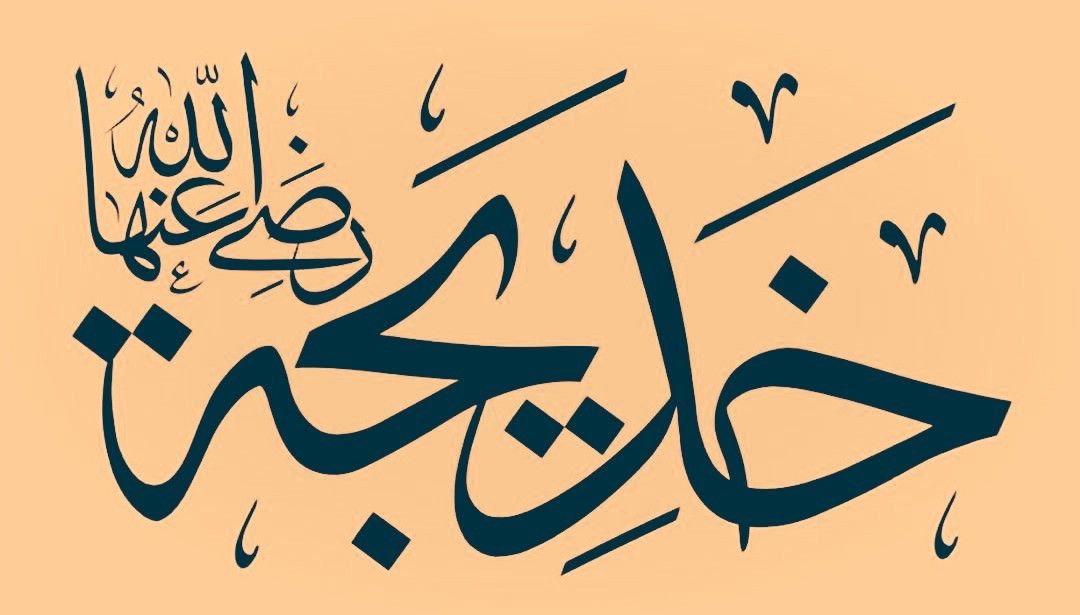 خَدِيجَة
رَضِيَ اللّٰهُ عَنْهَا